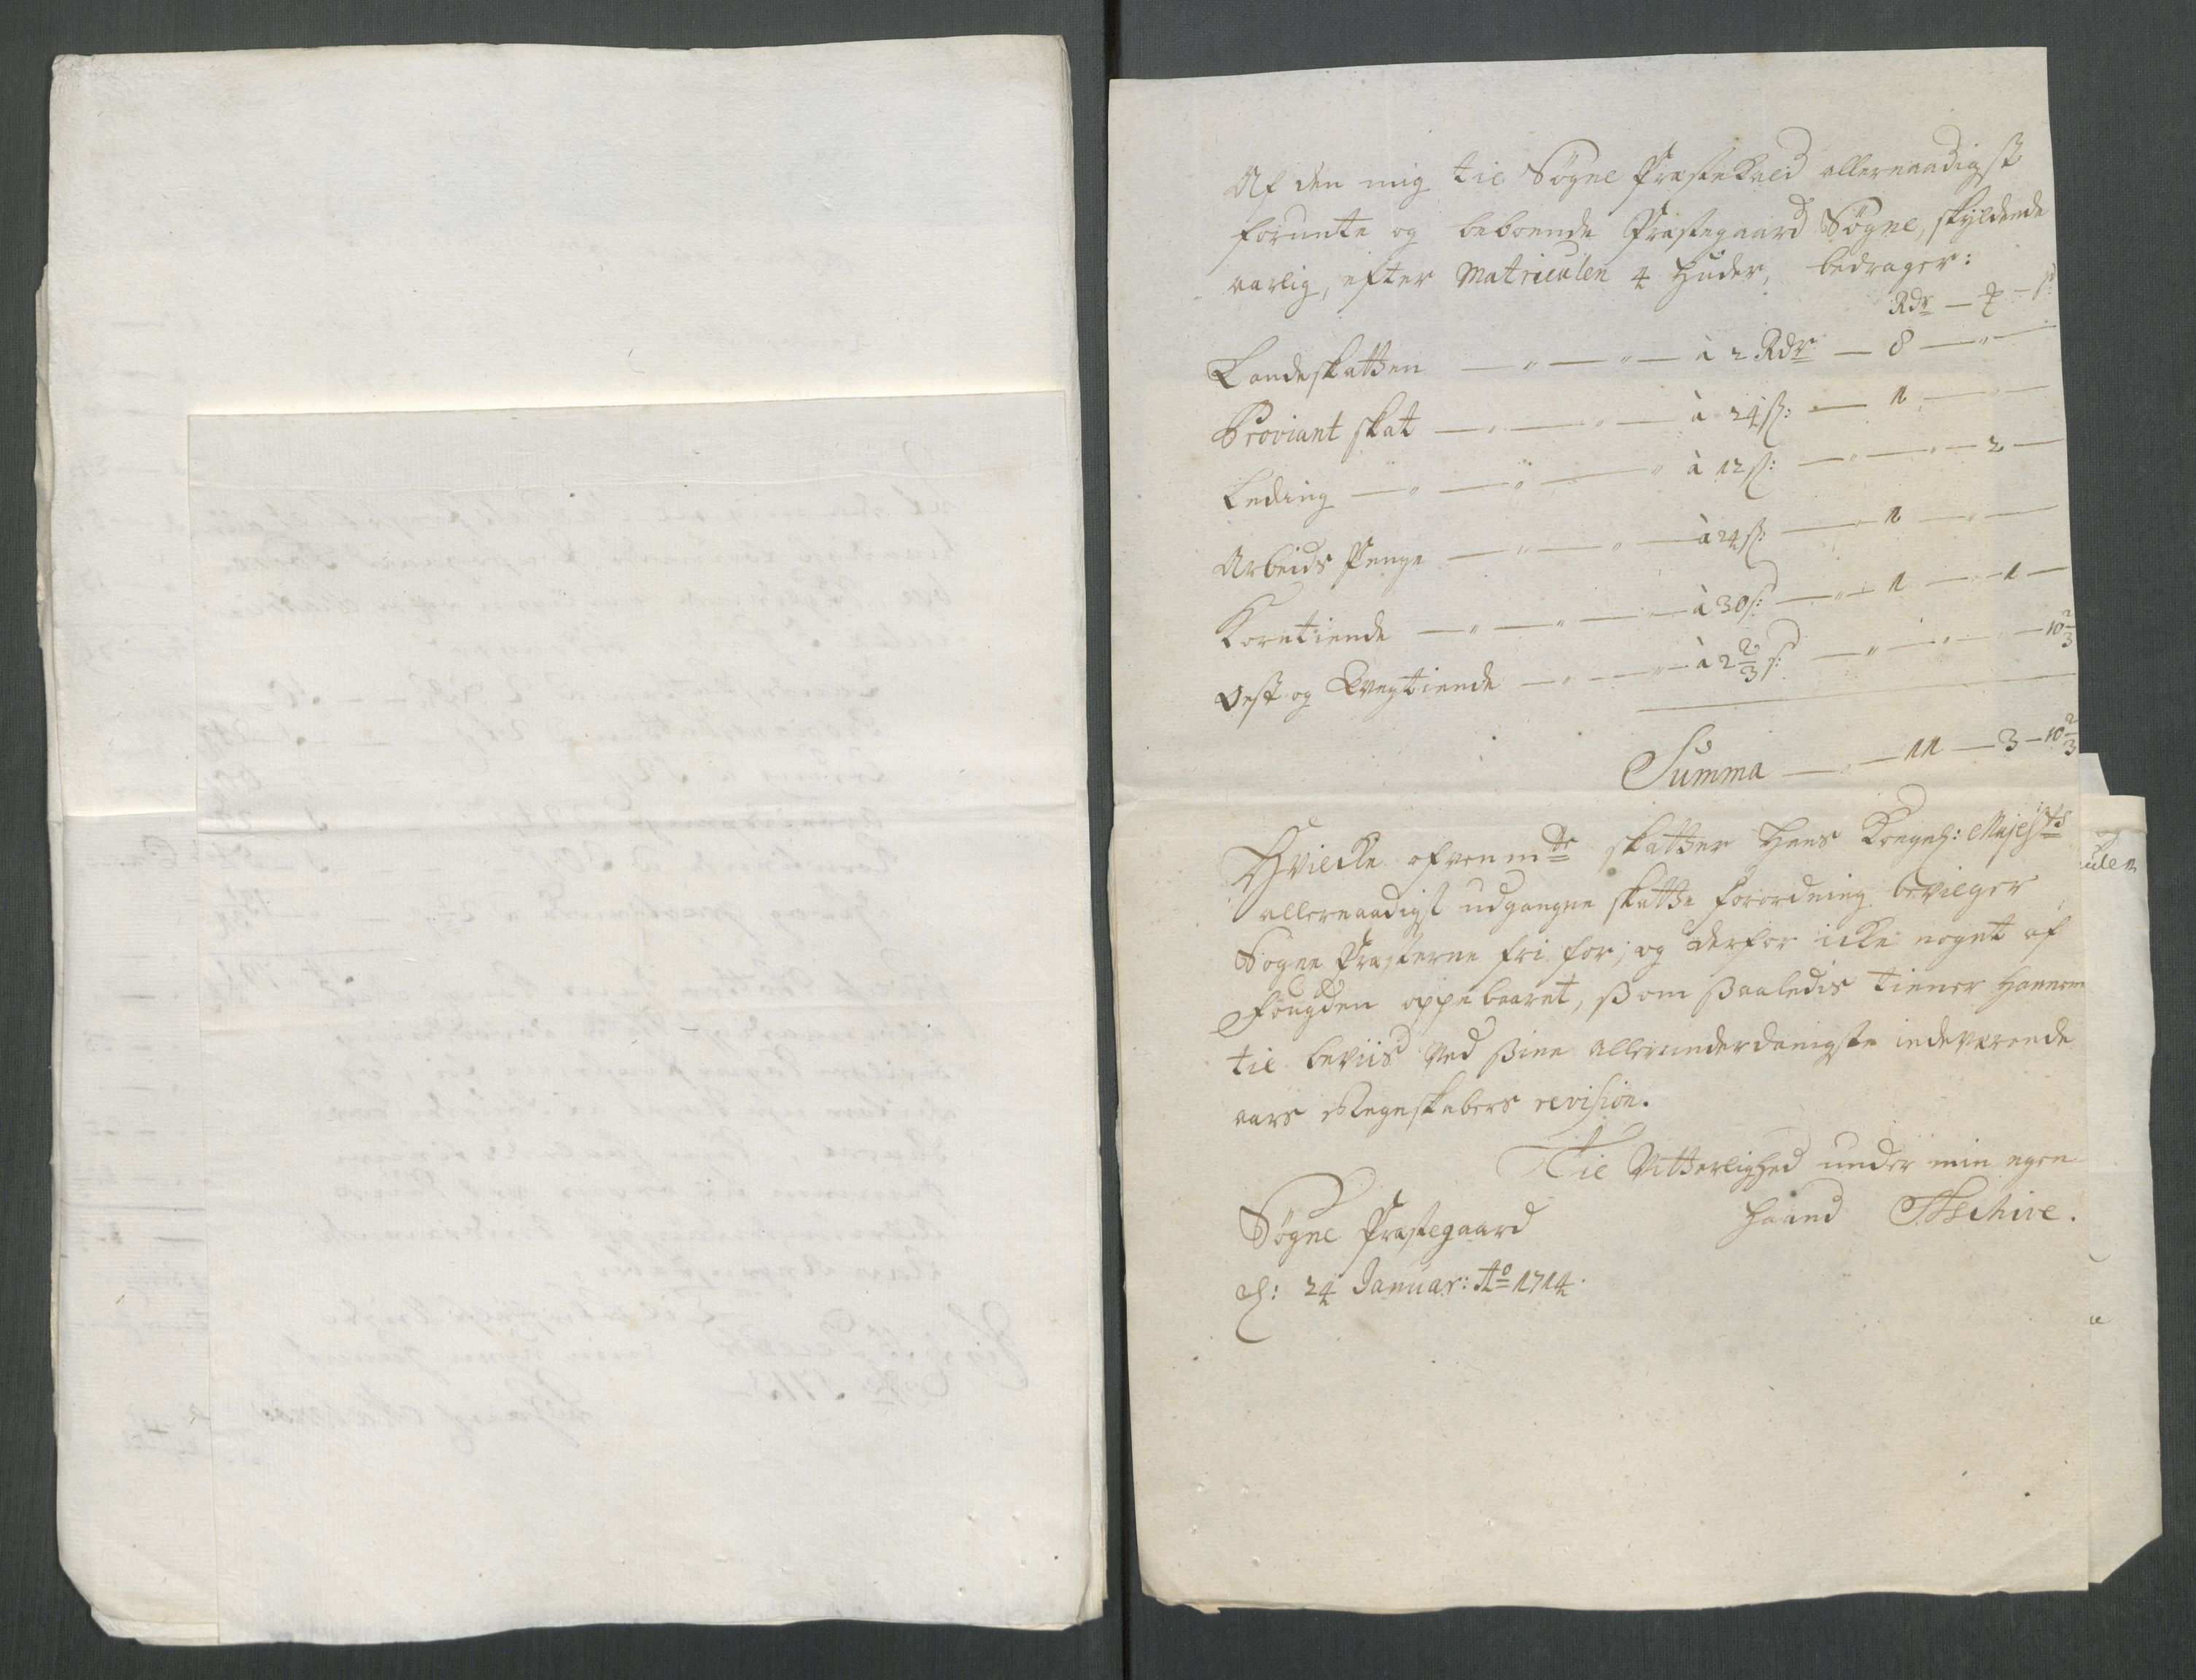 Af den mig til Søgne Præstekald allernaadigst
forunte og beboende Præstegaard Søgne, skyldende
aarlig, efter Matriculen 4 Huder, bedrager:
Rdr — ₰ — s:
Landskatten — " — " — à 2 Rdr — 8 — " —
Proviant skat — " — " — à 24 s: — 1 — " —
Leding — " — " — " à 12 s: — " — " — 2 —
Arbeids Penge — " — " — à 24 s: — 1 — " —
Korntiende — " — " — à 30 s: — " — 1 — 1 —
Ost og Qvegtiende — " — " — à 2 2/3 s: — " — " — 10 2/3
Summa — 11 — 3 — 10 2/3
Hvilcke ofvenmte skatter Hans Kongel: Majests
allernaadigst udgangne skatte forordning bevilger
Sogne Præsterne fri for; og derfor icke noget af
Fougden oppebaaret, som saaledis tiener Hannem
til beviis ved sine allerunderdanigste indeværende
aars Regnskabers revision.
Til Vitterlighed under min egen
Søgne Præstegaard haand
d: 24 Januar: Ao 1714.
og
culen